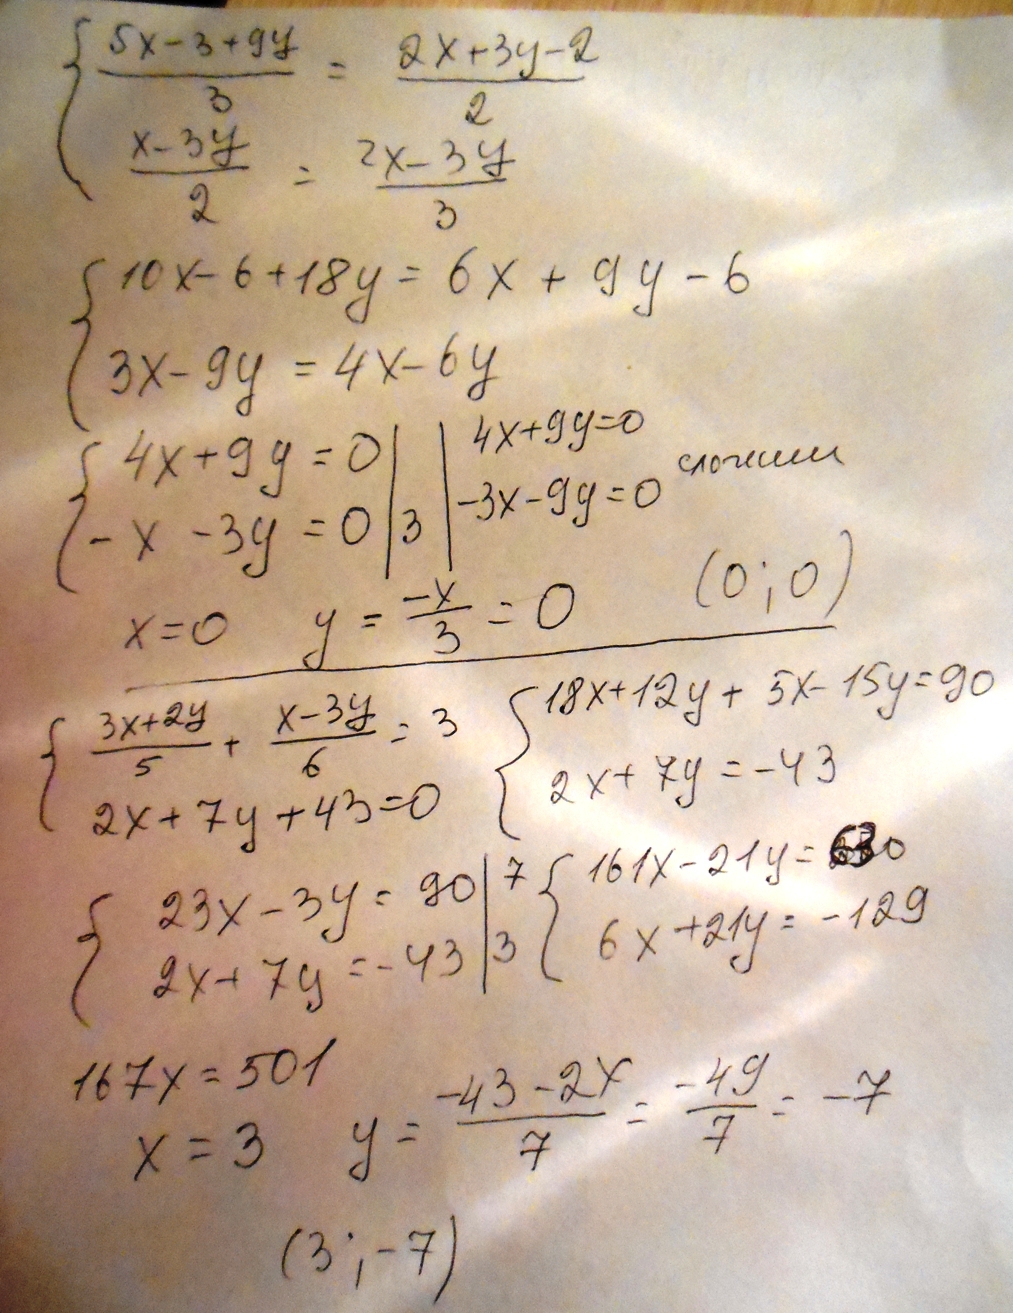 { (5x-3+9y)/3 = (2x+3y-2)/2
(x-3y)/2 = (2x-3y)/3
{ 10x-6+18y = 6x+9y-6
3x-9y = 4x-6y
{ 4x+9y=0 | | 4x+9y=0
-x-3y=0 |3| -3x-9y=0 сложим
x=0 y = -x/3 = 0 (0;0)
{ (3x+2y)/5 + (x-3y)/6 = 3
2x+7y+43=0
{ 18x+12y+5x-15y=90
2x+7y=-43
{ 23x-3y=90 |7
2x+7y=-43 |3
{ 161x-21y=630
6x+21y=-129
167x=501
x=3 y = (-43-2x)/7 = -49/7 = -7
(3;-7)